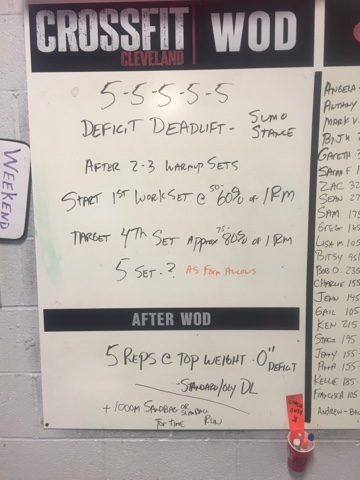 CROSSFIT
CLEVELAND
WOD
5-5-5-5-5
DEFICIT DEADLIFT - SUMO
STANCE
AFTER 2-3 WARMUP SETS
START 1ST WORK SET @ 50-60% OF 1RM
TARGET 4TH SET APPROX 75-80% OF 1RM
5 SET - ? AS FORM ALLOWS
WEEKEND
AFTER WOD
5 REPS @ TOP WEIGHT - 0" DEFICIT
STANDARD/OLY DL
+ 1000M SANDBAG OR SLAMBALL
FOR TIME RUN
ANGELA -
ANTHONY
MARK V.
GARETH
SARAH F
ZAC 32
SEAN 27
SAM 175
GREG 165
LISA M 105
BITSY 95
BOB O. 235
CHARLIE 155
JEAN 145
GAIL 105
KEN 215
195
JENNY 155
155
KELLIE 185
FRANCISCA 105
ANDREW - BA